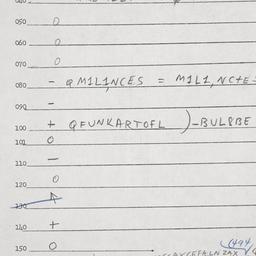 050 O
060 O
070 O
080 - QM1L1NCES = M1L1,NC+E=
090 -
100 + QFUNKARTOFL )-BULBBE
101 O
110 -
120 O
130
140 +
150 O (494